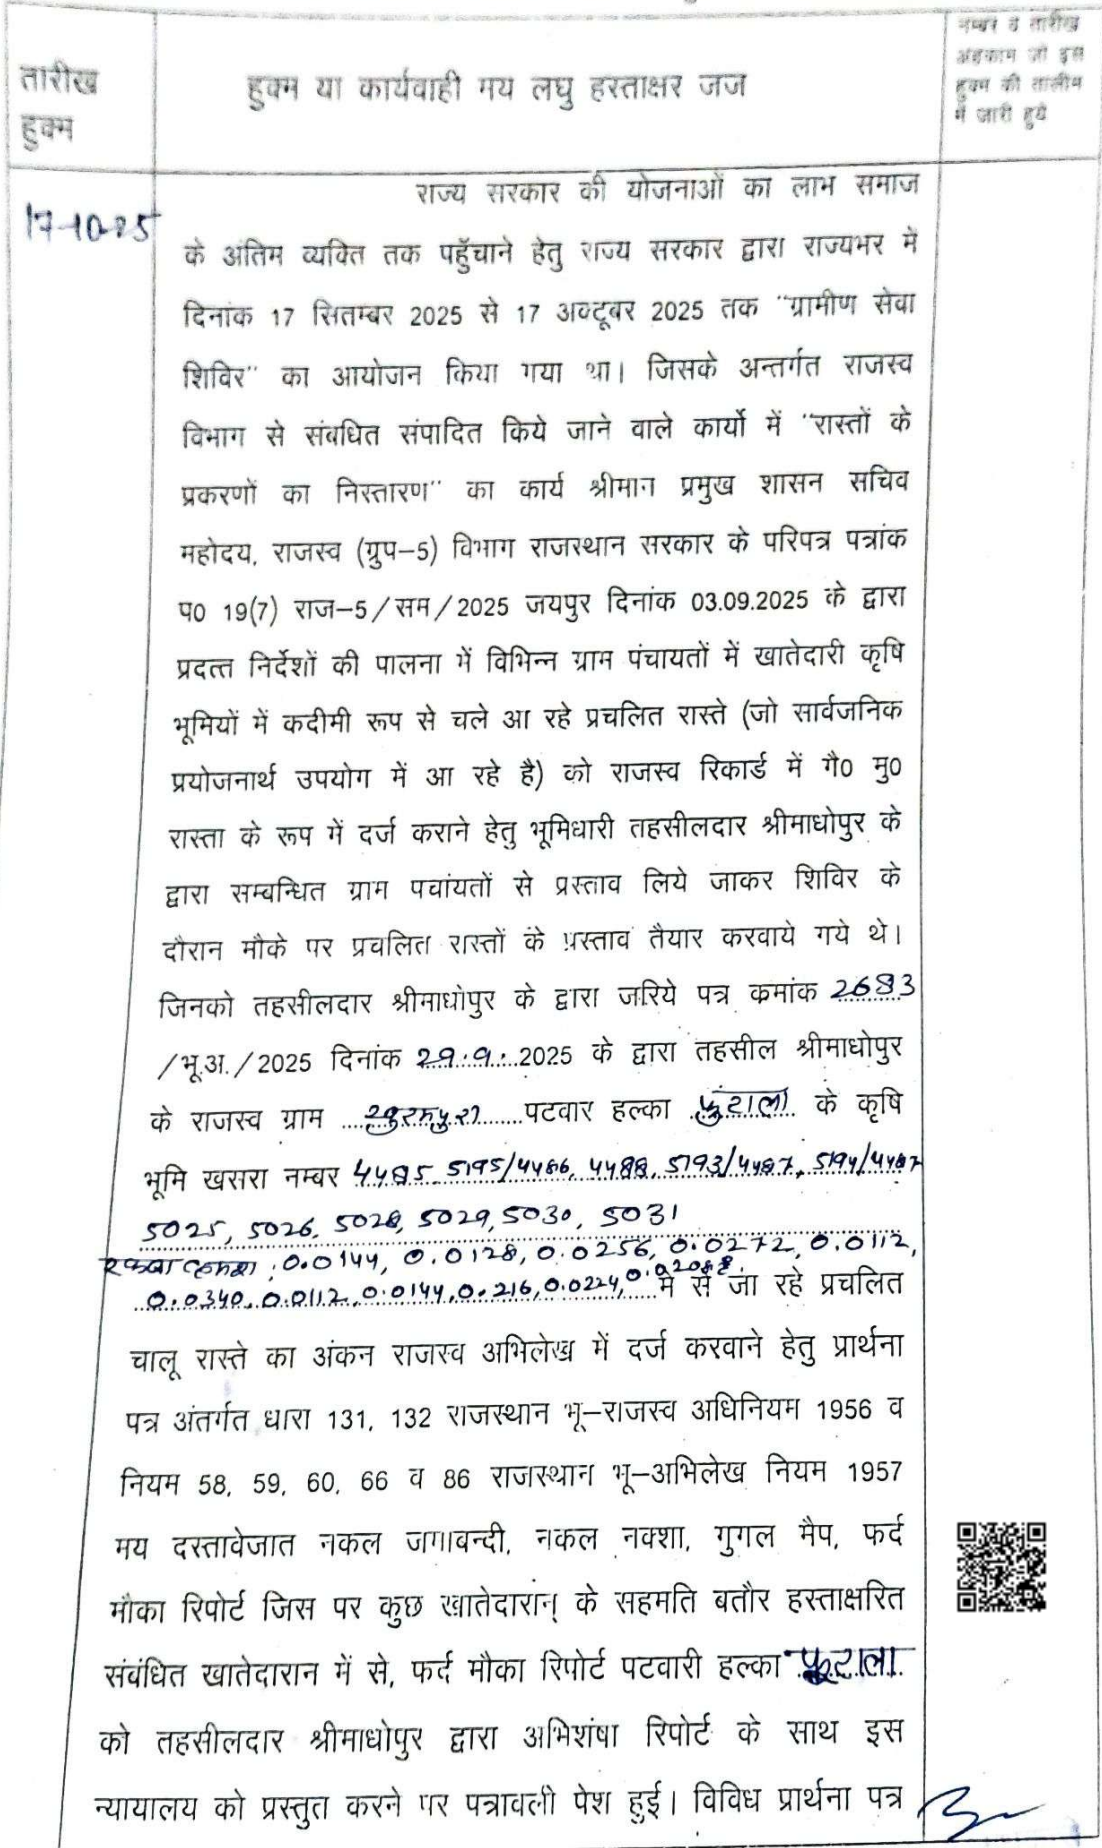 तारीख
हुक्म
हुक्म या कार्यवाही मय लघु हस्ताक्षर जज
नम्बर व तारीख
अहकाम जो इस
हुक्म की तालीम
में जारी हुये
17-10-25
राज्य सरकार की योजनाओं का लाभ समाज
के अंतिम व्यक्ति तक पहुँचाने हेतु राज्य सरकार द्वारा राज्यभर में
दिनांक 17 सितम्बर 2025 से 17 अक्टूबर 2025 तक "ग्रामीण सेवा
शिविर" का आयोजन किया गया था। जिसके अन्तर्गत राजस्व
विभाग से संबधित संपादित किये जाने वाले कार्यो में "रास्तों के
प्रकरणों का निस्तारण" का कार्य श्रीमान प्रमुख शासन सचिव
महोदय, राजस्व (ग्रुप–5) विभाग राजस्थान सरकार के परिपत्र पत्रांक
प0 19(7) राज–5/सम/2025 जयपुर दिनांक 03.09.2025 के द्वारा
प्रदत्त निर्देशों की पालना में विभिन्न ग्राम पंचायतों में खातेदारी कृषि
भूमियों में कदीमी रूप से चले आ रहे प्रचलित रास्ते (जो सार्वजनिक
प्रयोजनार्थ उपयोग में आ रहे है) को राजस्व रिकार्ड में गै0 मु0
रास्ता के रूप में दर्ज कराने हेतु भूमिधारी तहसीलदार श्रीमाधोपुर के
द्वारा सम्बन्धित ग्राम पचांयतों से प्रस्ताव लिये जाकर शिविर के
दौरान मौके पर प्रचलित रास्तों के प्रस्ताव तैयार करवाये गये थे।
जिनको तहसीलदार श्रीमाधोपुर के द्वारा जरिये पत्र क्रमांक 2683
/भू.अ./2025 दिनांक 29.9.2025 के द्वारा तहसील श्रीमाधोपुर
के राजस्व ग्राम ...... पटवार हल्का फुटाला के कृषि
भूमि खसरा नम्बर 4485, 5195/4486, 4488, 5193/4487, 5194/4487
5025, 5026, 5028, 5029, 5030, 5031
रकबा क्रमशः 0.0144, 0.0128, 0.0256, 0.0272, 0.0112,
0.0340, 0.0112, 0.0144, 0.216, 0.0224, में से जा रहे प्रचलित
चालू रास्ते का अंकन राजस्व अभिलेख में दर्ज करवाने हेतु प्रार्थना
पत्र अंतर्गत धारा 131, 132 राजस्थान भू–राजस्व अधिनियम 1956 व
नियम 58, 59, 60, 66 व 86 राजस्थान भू–अभिलेख नियम 1957
मय दस्तावेजात नकल जमाबन्दी, नकल नक्शा, गुगल मैप, फर्द
मौका रिपोर्ट जिस पर कुछ खातेदारान् के सहमति बतौर हस्ताक्षरित
संबंधित खातेदारान में से, फर्द मौका रिपोर्ट पटवारी हल्का फुटाला
को तहसीलदार श्रीमाधोपुर द्वारा अभिशंषा रिपोर्ट के साथ इस
न्यायालय को प्रस्तुत करने पर पत्रावली पेश हुई। विविध प्रार्थना पत्र